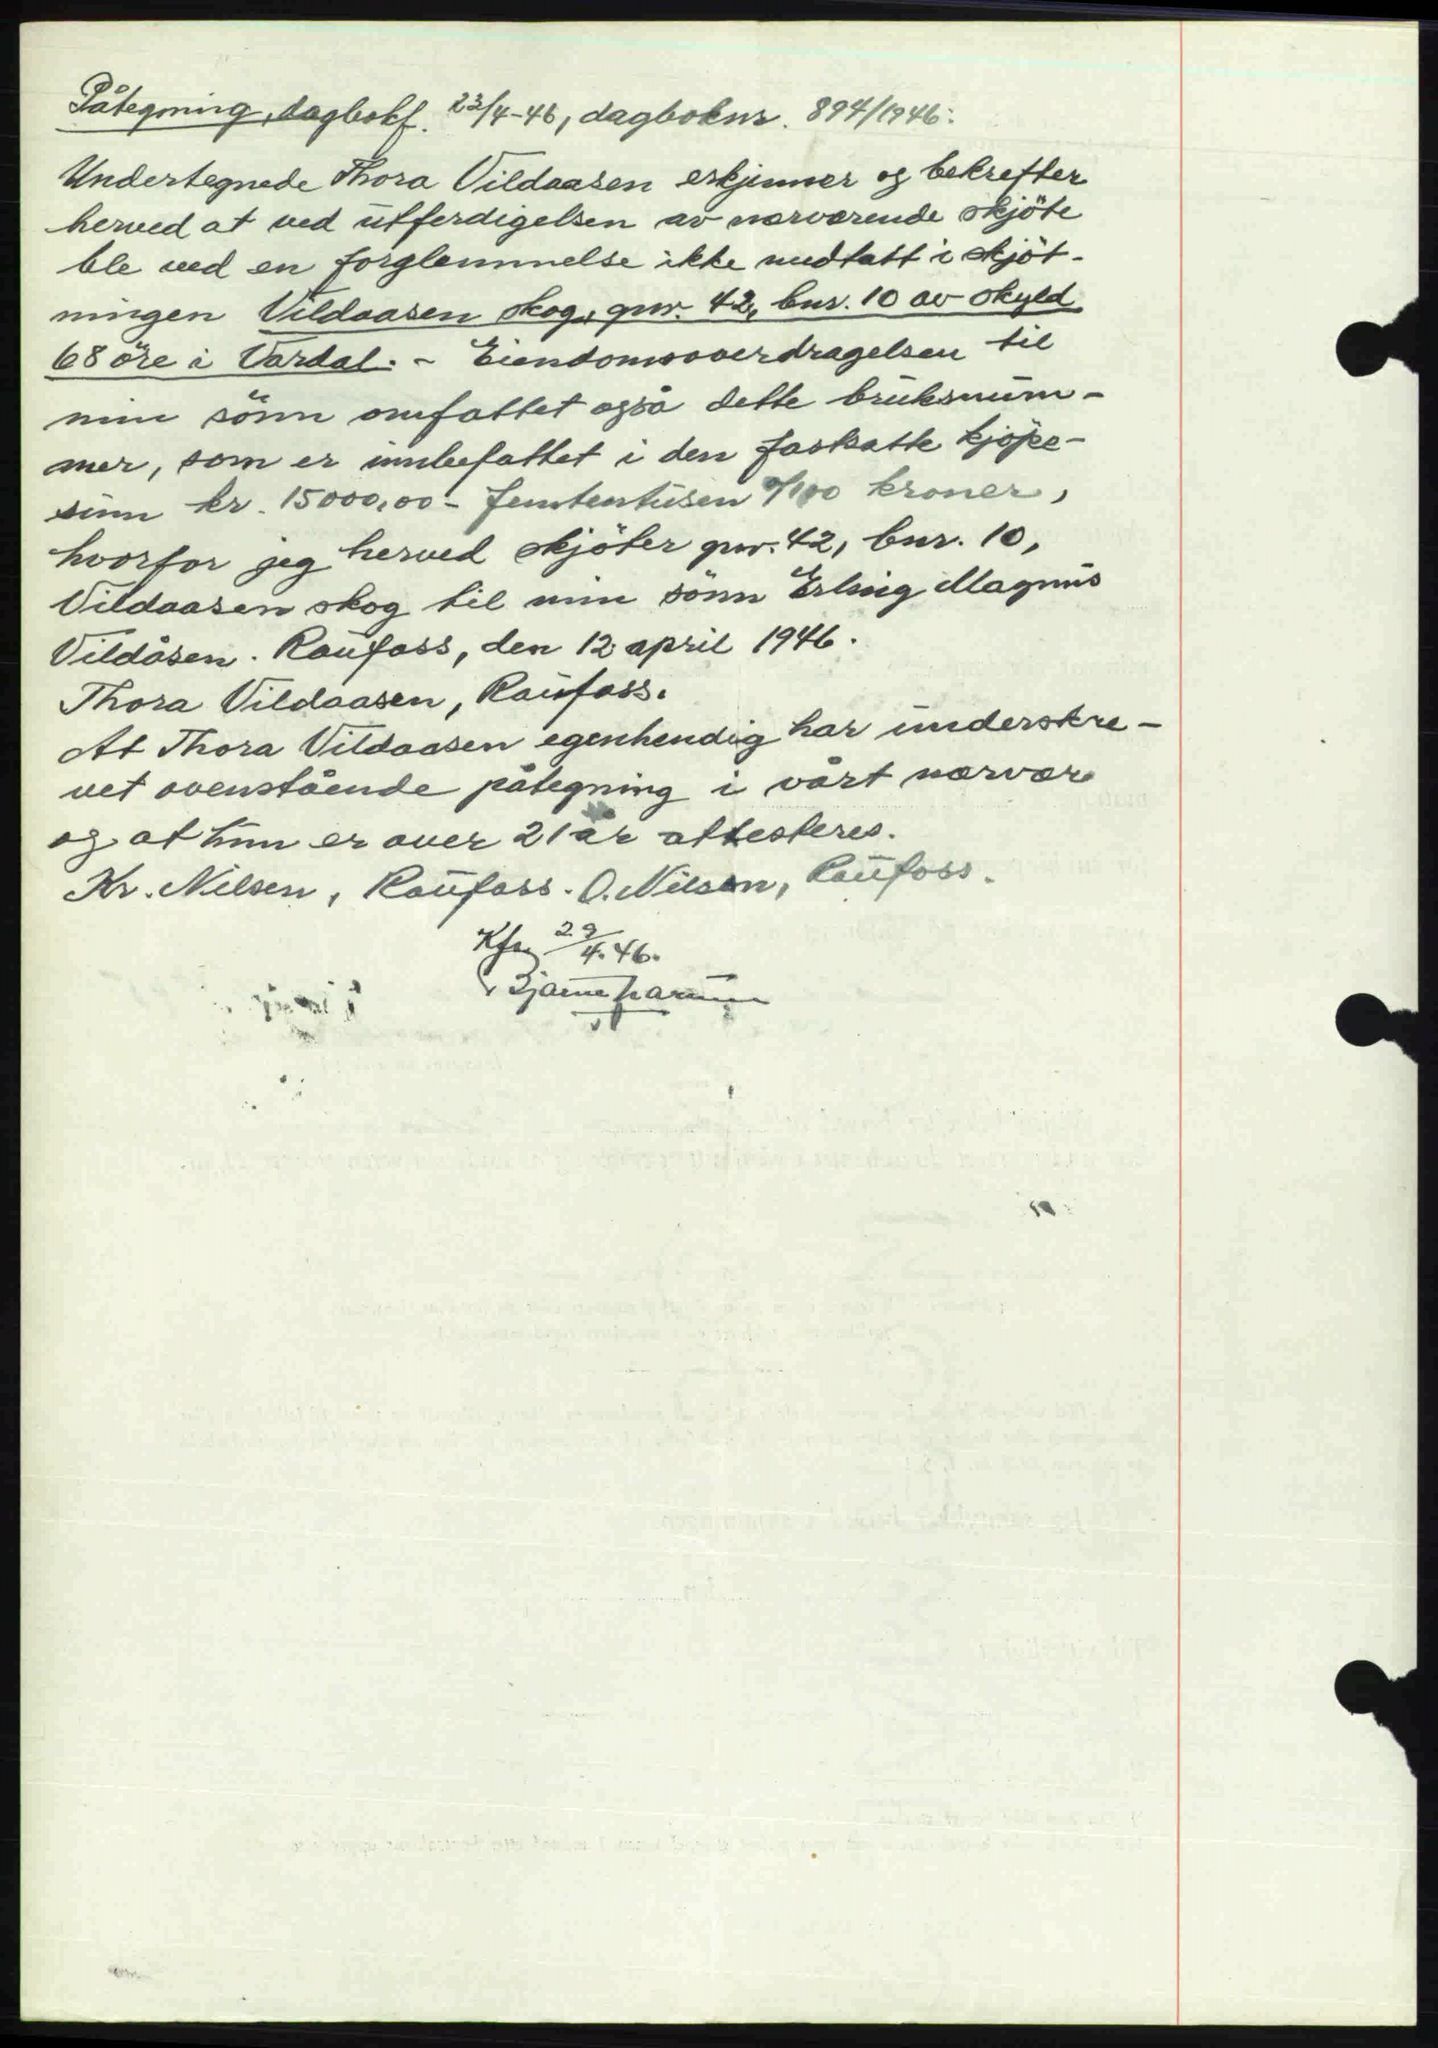 Påtegning, dagbokf. 23/4-46, dagboknr. 894/1946:
Undertegnede Thora Vildaasen erkjenner og bekrefter
herved at ved utferdigelsen av nærværende skjöte
ble ved en forglemmelse ikke medtatt i skjöt-
ningen Vildaasen skog, gnr. 42, bnr. 10 av skyld
68 öre i Vardal. - Eiendomsoverdragelsen til
min sönn omfattet også dette bruksnum-
mer, som er innbefattet i den fastsatte kjöpe-
sum kr. 15000,00 - femtentusen 0/100 kroner,
hvorfor jeg herved skjöter gnr. 42, bnr. 10,
Vildaasen skog til min sönn Erling Magnus
Vildåsen. Raufoss, den 12 april 1946.
Thora Vildaasen, Raufoss.
At Thora Vildaasen egenhendig har underskre-
vet ovenstående påtegning i vårt nærvær
og at hun er over 21 år attesteres.
Kr. Nilsen, Raufoss. O. Nilsen, Raufoss.
29/4.46.
Bjarne